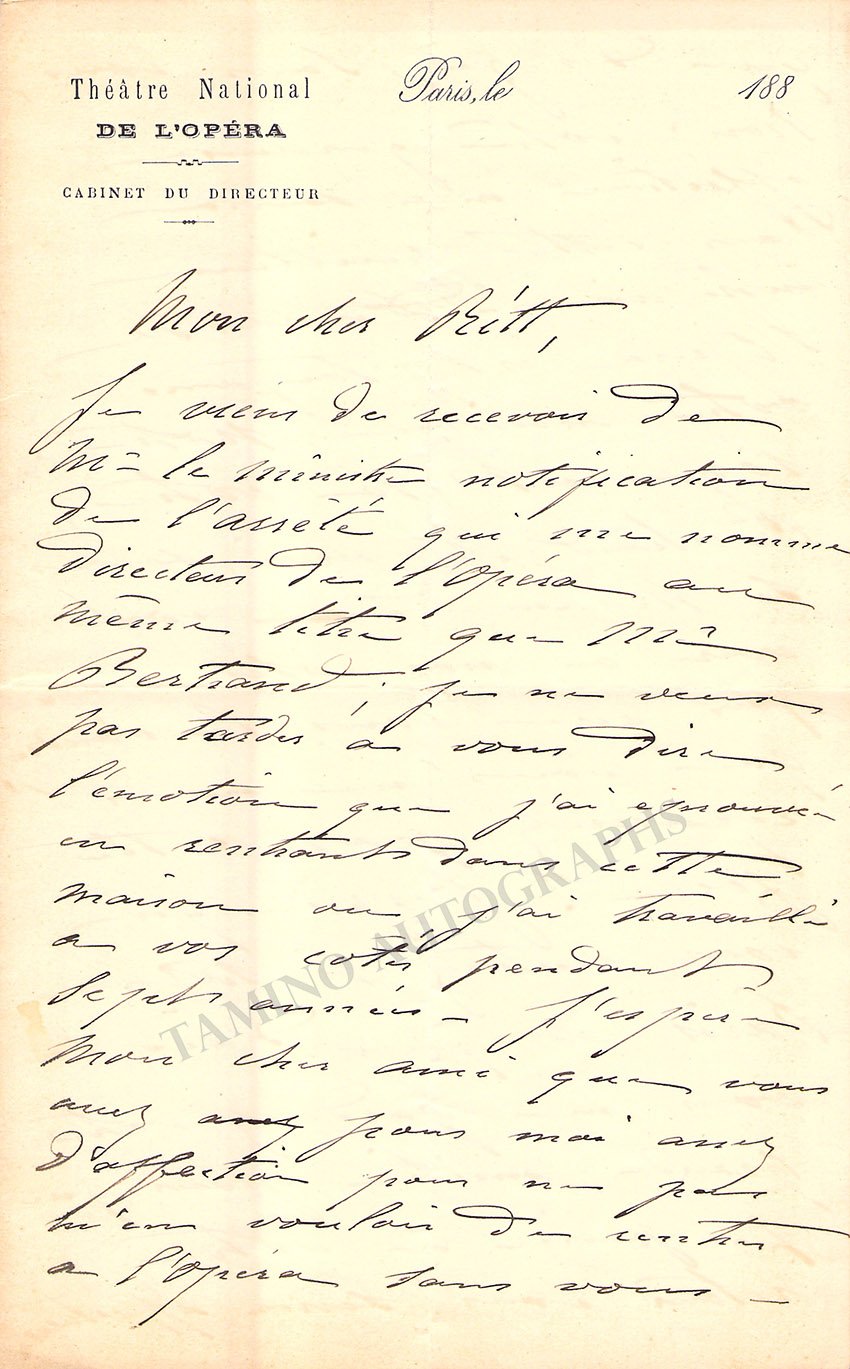 Théâtre National
DE L'OPÉRA
CABINET DU DIRECTEUR
Paris, le 188
Mon cher Ritt,
Je viens de recevoir de
Mr le ministre notification
de l'arrêté qui me nomme
Directeur de l'Opéra au
même titre que Mr
Bertrand; je ne veux
pas tarder à vous dire
l'émotion que j'ai eprouvé
en rentrant dans cette
maison ou j'ai travaillé
a vos cotés pendant
sept années - J'espère
mon cher ami que vous
avez avez pour moi assez
d'affection pour ne pas
m'en vouloir de rentrer
a l'Opéra sans vous -
TAMINO AUTOGRAPHS